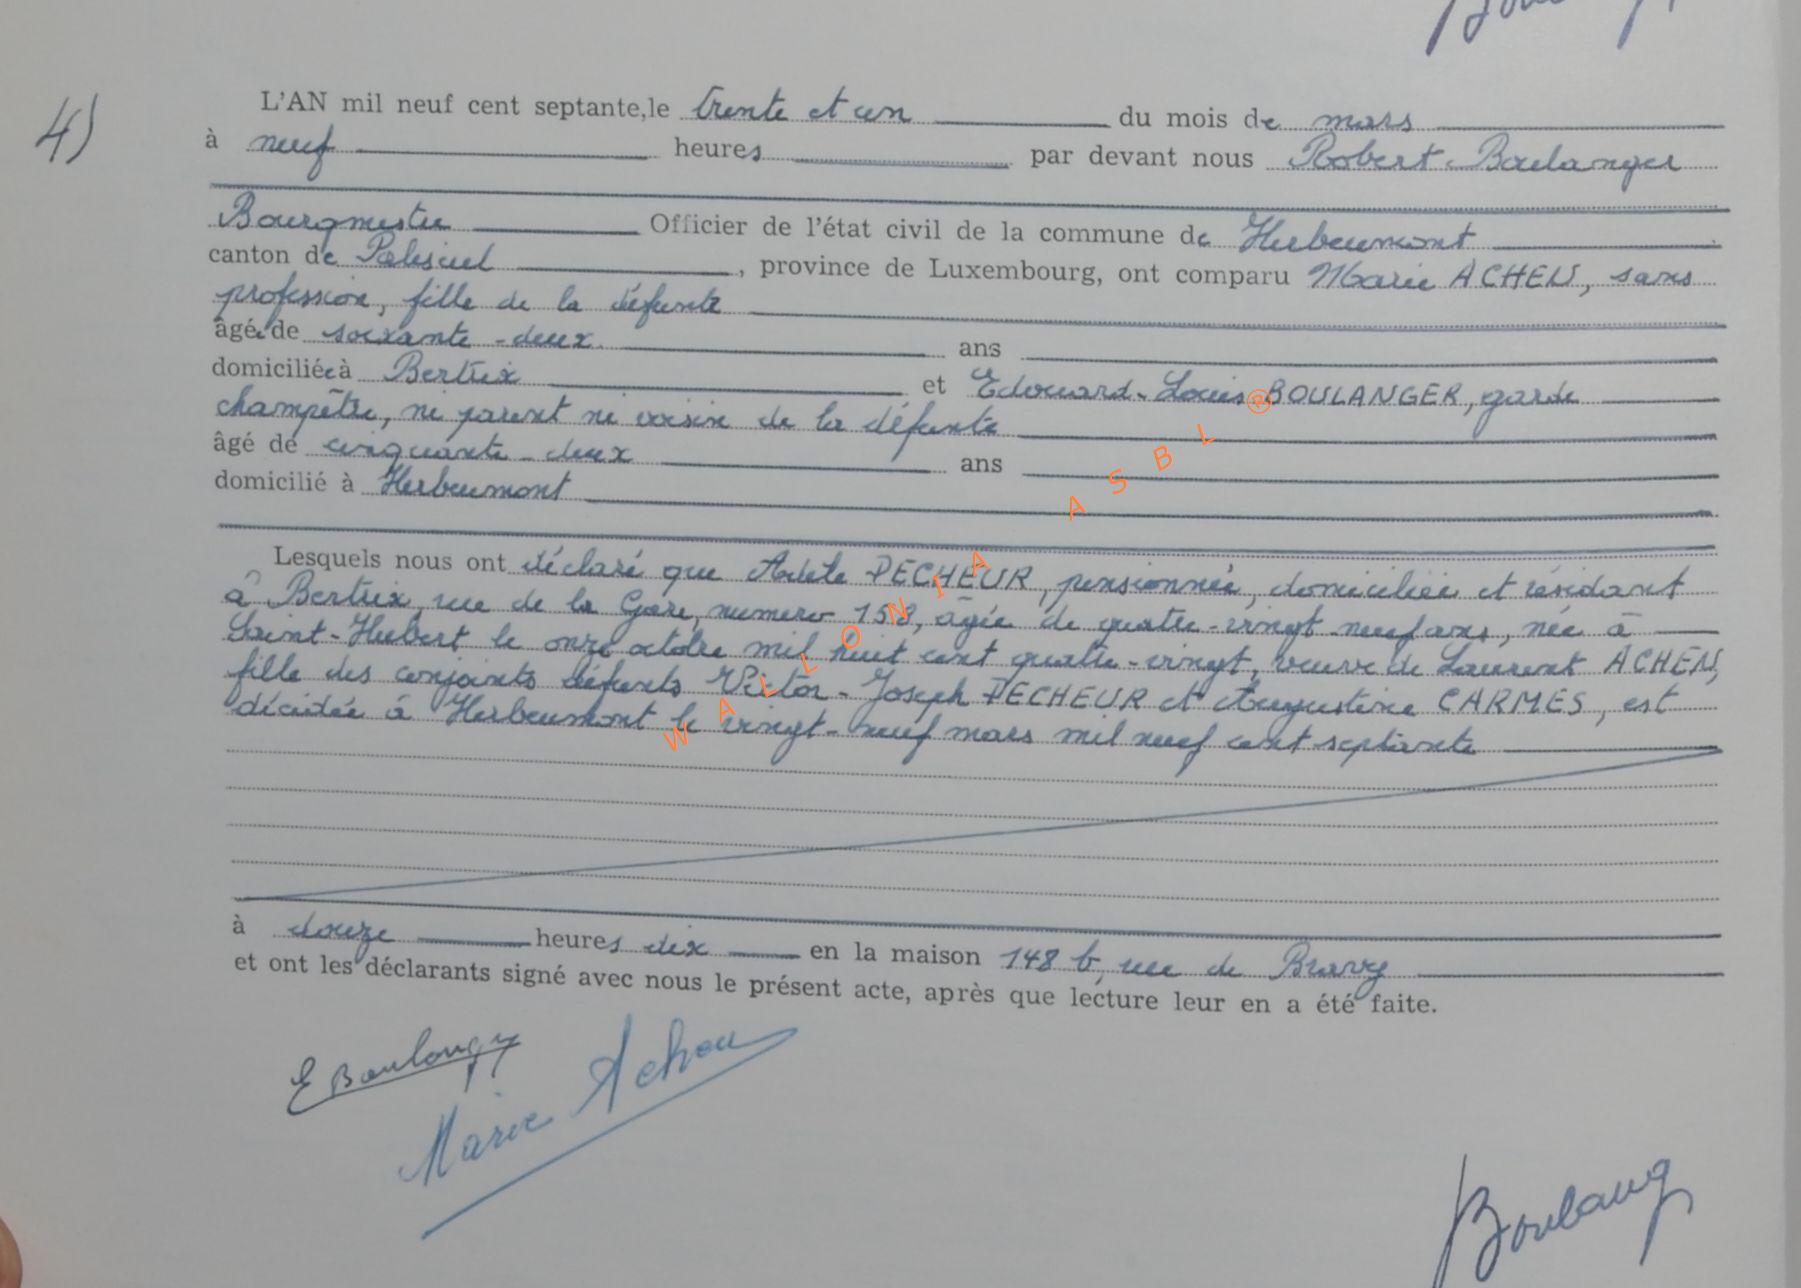 4)
L'AN mil neuf cent septante, le trente et un du mois de mars
à neuf heures par devant nous Robert Boulanger
Bourgmestre Officier de l'état civil de la commune de Herbeumont
canton de Paliseul, province de Luxembourg, ont comparu Marie ACHEN, sans
profession, fille de la défunte
âgée de soixante-deux ans
domiciliée à Bertrix et Edouard-Louis BOULANGER, garde
champêtre, ni parent ni voisin de la défunte
âgé de cinquante-deux ans
domicilié à Herbeumont
Lesquels nous ont déclaré que Adèle PECHEUR, pensionnée, domiciliée et résidant
à Bertrix, rue de la Gare, numero 158, âgée de quatre-vingt neuf ans, née à
Saint-Hubert le onze octobre mil huit cent quatre-vingt, veuve de Laurent ACHEN,
fille des conjoints défunts Victor-Joseph PECHEUR et Augustine CARMES, est
décédée à Herbeumont le vingt-neuf mars mil neuf cent septante
à douze heures dix en la maison 148 b, rue de
et ont les déclarants signé avec nous le présent acte, après que lecture leur en a été faite.
E Boulanger
Marie Achen
Boulanger
WALLONIA ASBL ®